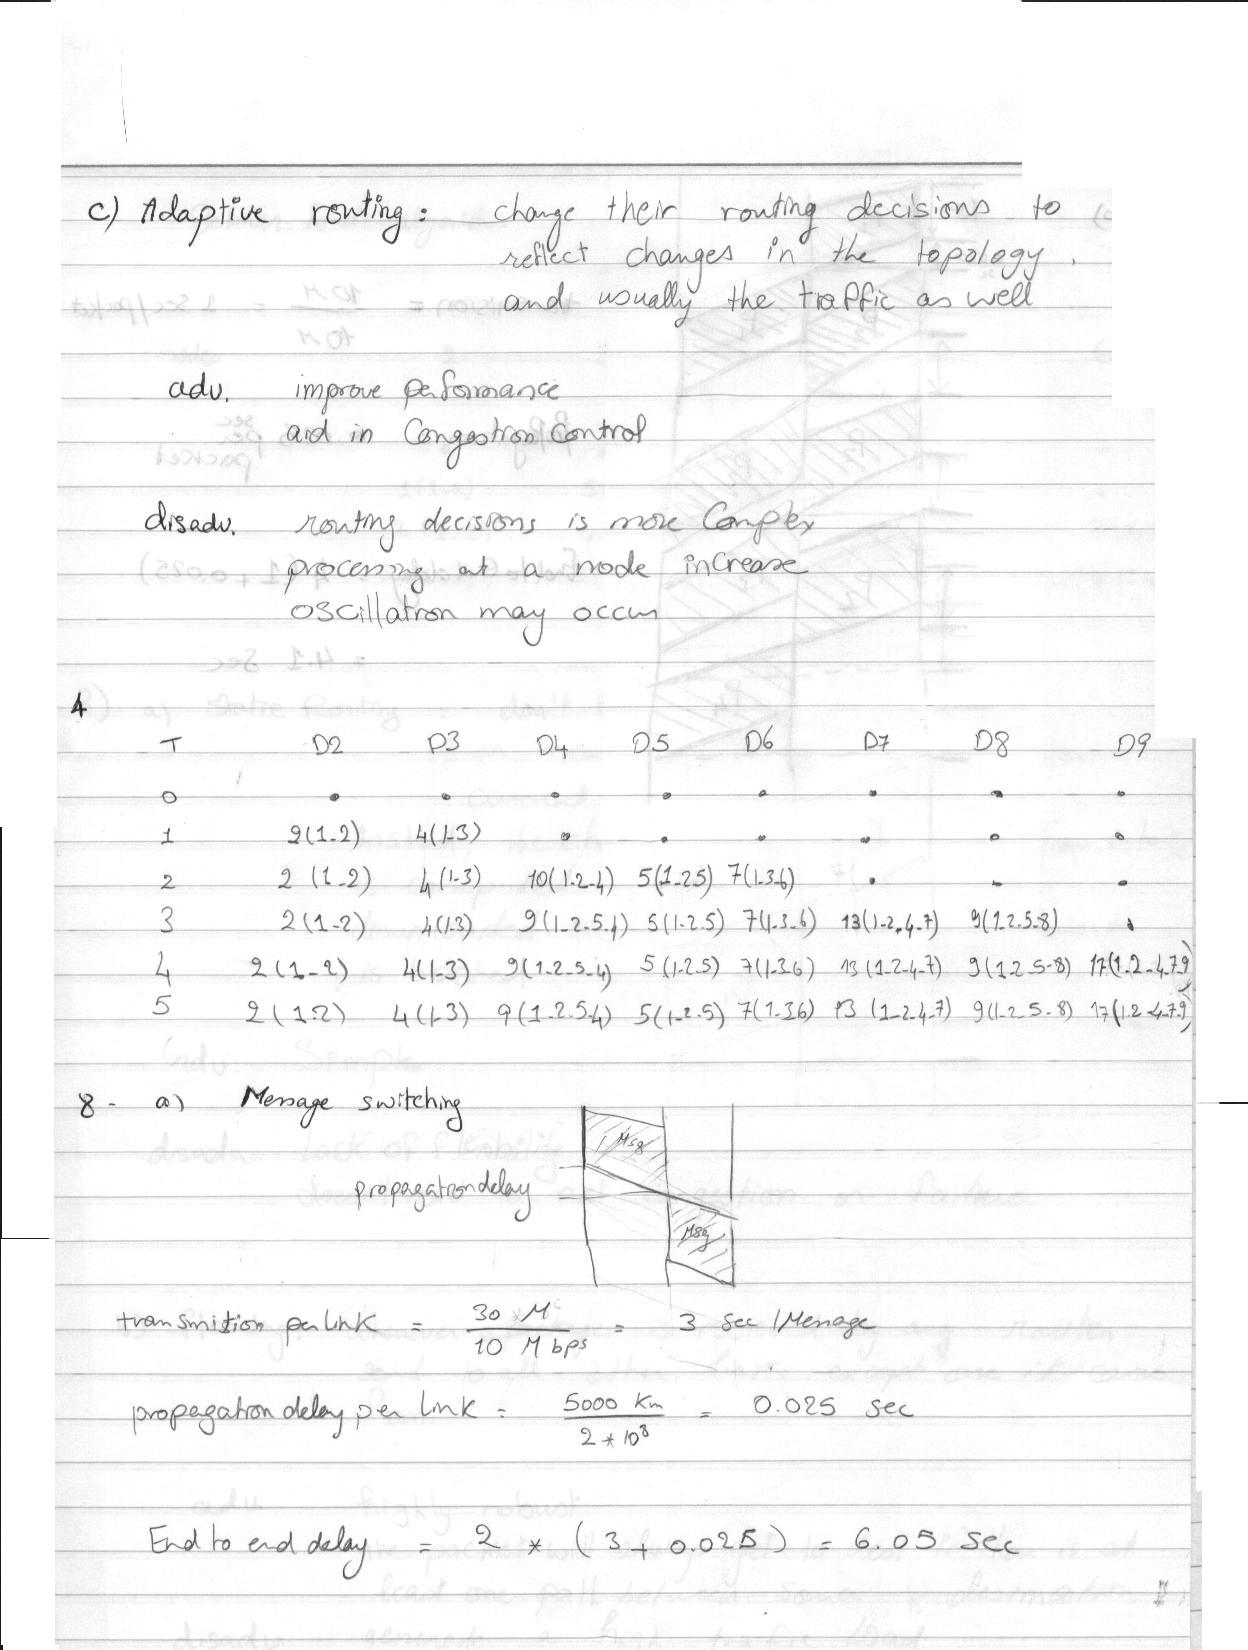 c) Adaptive routing: change their routing decisions to
reflect changes in the topology.
and usually the traffic as well
adv. improve performance
aid in Congestion Control
disadv. routing decisions is more Complex
processing at a node increase
oscillation may occur
4
T D2 D3 D4 D5 D6 D7 D8 D9
0 • • • • • • • •
1 2(1-2) 4(1-3) • • • • • •
2 2 (1-2) 4 (1-3) 10(1-2-4) 5(1-2-5) 7(1-3-6) • • •
3 2(1-2) 4(1-3) 9(1-2-5-4) 5(1-2-5) 7(1-3-6) 13(1-2-4-7) 9(1-2-5-8) •
4 2(1-2) 4(1-3) 9(1-2-5-4) 5(1-2-5) 7(1-3-6) 13(1-2-4-7) 9(1-2-5-8) 17(1-2-4-7-9)
5 2(1-2) 4(1-3) 9(1-2-5-4) 5(1-2-5) 7(1-3-6) 13 (1-2-4-7) 9(1-2-5-8) 17(1-2-4-7-9)
8 - a) Message switching
Msg
propagation delay
Msg
transmition per link = 30 * M / 10 Mbps = 3 sec /Message
propagation delay per link = 5000 Km / 2 * 10^8 = 0.025 sec
End to end delay = 2 * (3 + 0.025) = 6.05 sec